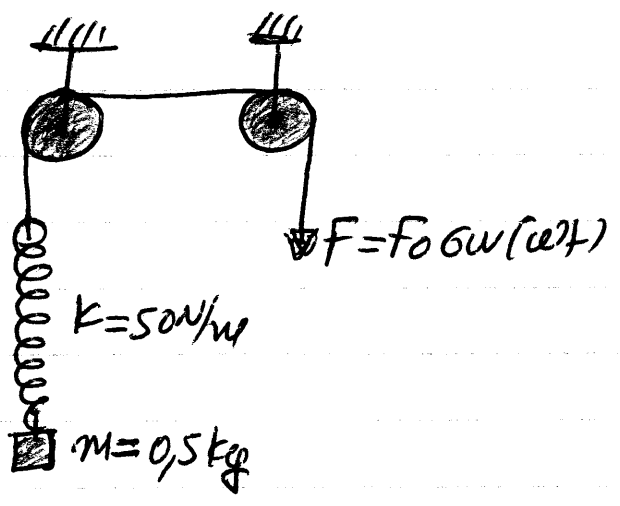 F=F0 cos(ωt)
K=50N/m
m=0,5kg